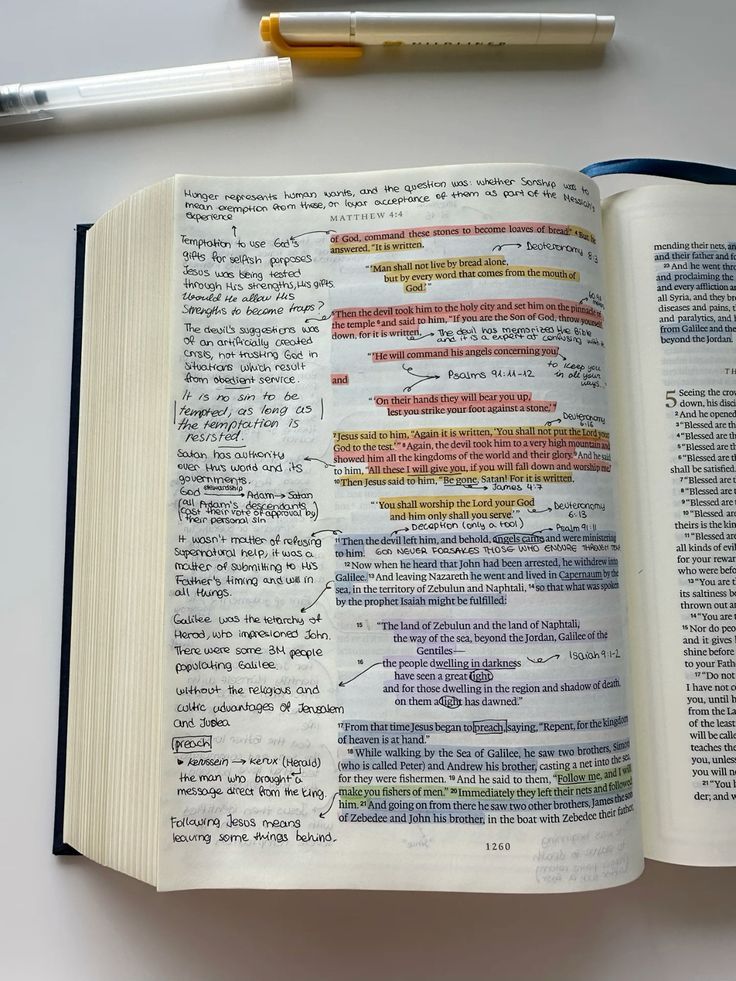 MILDLINER
Hunger represents human wants, and the question was: whether Sonship was to
mean exemption from these, or loyar acceptance of them as part of the Messiah's
experience
MATTHEW 4:4
Temptation to use God's
gifts for selfish purposes
Jesus was being tested
through His strengths, His gifts.
Would He allow His
strengths to become traps?
The devil's suggestions was
of an artificially created
crisis, not trusting God in
situations which result
from obedient service.
It is no sin to be
tempted, as long as
the temptation is
resisted.
Satan has authority
over this world and its
governments.
stewardship
God → Adam → Satan
(all Adam's descendants
cast their vote of approval by
their personal sin
It wasn't matter of refusing
supernatural help, it was a
matter of submitting to His
Father's timing and will in
all things.
Galilee was the tetrarchy of
Herod, who impresioned John.
There were some 3M people
populating Galilee.
without the religious and
cultic advantages of Jerusalem
and Judea
preach
kerussein → kerux (Herald)
the man who brought a
message direct from the king.
Following Jesus means
leaving some things behind.
of God, command these stones to become loaves of bread." 4 But he
answered, "It is written,
Deuteronomy
8:3
"'Man shall not live by bread alone,
but by every word that comes from the mouth of
God.'"
5 Then the devil took him to the holy city and set him on the pinnacle of
the temple 6 and said to him, "If you are the Son of God, throw yourself
down, for it is written,
The devil has memorized the Bible
and it is a expert at confusing with it
"'He will command his angels concerning you,'
to keep you
in all your
ways..."
Psalms 91:11-12
and
"'On their hands they will bear you up,
lest you strike your foot against a stone.'"
Deuteronomy
6:16
7 Jesus said to him, "Again it is written, 'You shall not put the Lord your
God to the test.'" 8 Again, the devil took him to a very high mountain and
showed him all the kingdoms of the world and their glory. 9 And he said
to him, "All these I will give you, if you will fall down and worship me."
10 Then Jesus said to him, "Be gone, Satan! For it is written,
James 4:7
"'You shall worship the Lord your God
and him only shall you serve.'"
Deuteronomy
6:13
Deception (only a tool)
Psalm 91:11
11 Then the devil left him, and behold, angels came and were ministering
to him.
GOD NEVER FORSAKES THOSE WHO ENDURE THROUGH
12 Now when he heard that John had been arrested, he withdrew into
Galilee. 13 And leaving Nazareth he went and lived in Capernaum by the
sea, in the territory of Zebulun and Naphtali, 14 so that what was spoken
by the prophet Isaiah might be fulfilled:
15 "The land of Zebulun and the land of Naphtali,
the way of the sea, beyond the Jordan, Galilee of the
Gentiles—
16 the people dwelling in darkness
Isaiah 9:1-2
have seen a great light,
and for those dwelling in the region and shadow of death,
on them a light has dawned."
17 From that time Jesus began to preach, saying, "Repent, for the kingdom
of heaven is at hand."
18 While walking by the Sea of Galilee, he saw two brothers, Simon
(who is called Peter) and Andrew his brother, casting a net into the sea,
for they were fishermen. 19 And he said to them, "Follow me, and I will
make you fishers of men." 20 Immediately they left their nets and followed
him. 21 And going on from there he saw two other brothers, James the son
of Zebedee and John his brother, in the boat with Zebedee their father,
1260
mending their nets, an
and their father and fo
23 And he went thro
and proclaiming the
and every affliction a
all Syria, and they br
diseases and pains, t
and paralytics, and h
from Galilee and the
beyond the Jordan.
TH
5 Seeing the crow
down, his disci
2 And he opened
3 "Blessed are th
4 "Blessed are th
5 "Blessed are th
6 "Blessed are th
shall be satisfied.
7 "Blessed are th
8 "Blessed are th
9 "Blessed are th
10 "Blessed are th
theirs is the kin
11 "Blessed are
all kinds of evil
for your reward
who were befo
13 "You are th
its saltiness b
thrown out ar
14 "You are t
15 Nor do peo
and it gives l
shine before
to your Fathe
17 "Do not
I have not c
you, until h
from the La
of the least
will be calle
teaches the
you, unless
you will ne
21 "You h
der; and w